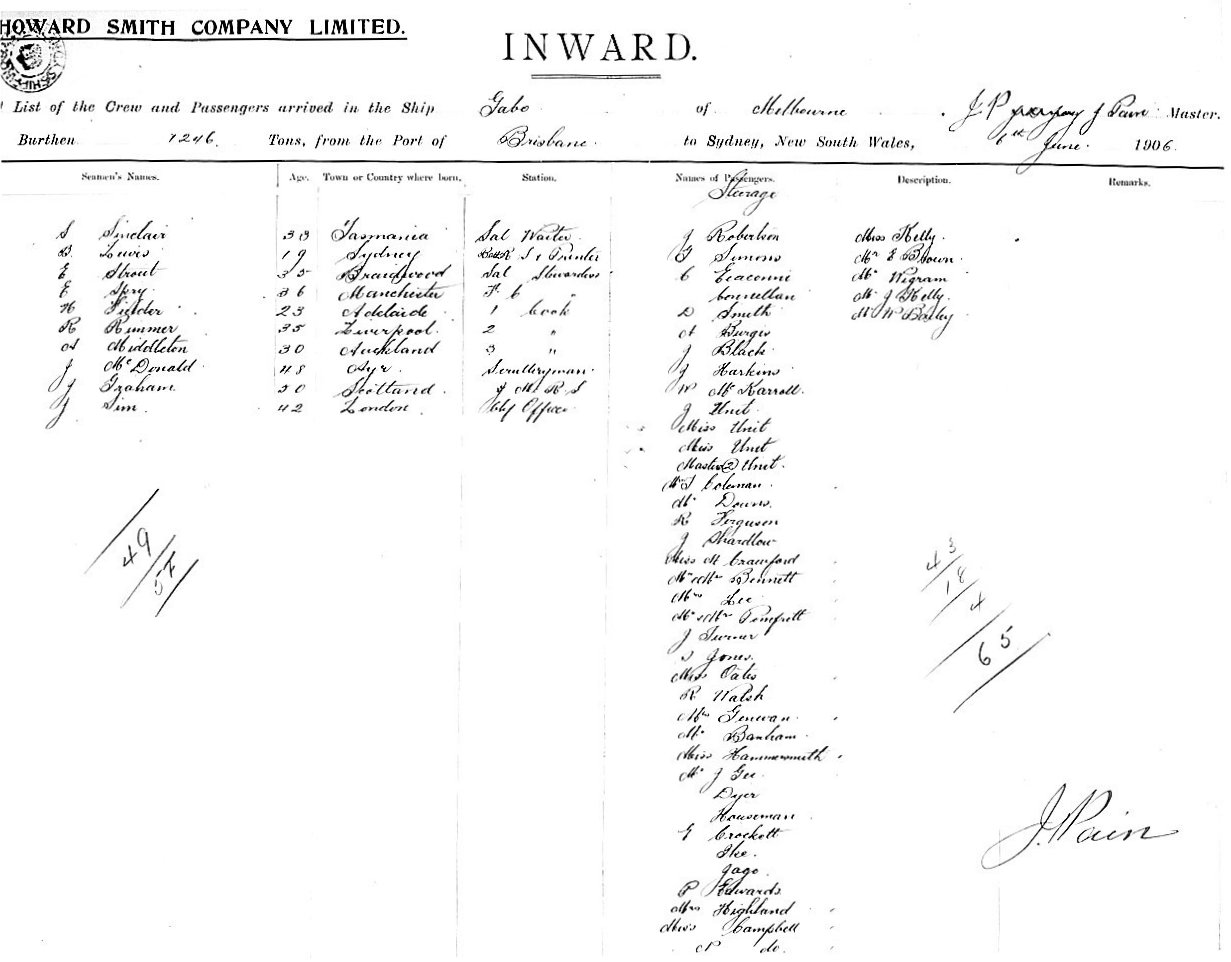 HOWARD SMITH COMPANY LIMITED.
INWARD.
List of the Crew and Passengers arrived in the Ship Gabo of Melbourne J Pain Master.
Burthen 1246 Tons, from the Port of Brisbane to Sydney, New South Wales, 6th June 1906.
Seamen's Names. Age. Town or Country where born. Station. Names of Passengers. Description. Remarks.
Sturage
S Sinclair 33 Tasmania Sal Waiter J Robertson Miss Kelly
B. Lewis 19 Sydney Printer G Simons Mr E Brown
E Strout 35 Braidwood Sal Stewardess C Mr Wigram
E Spry 36 Manchester F C " Connellan Mr J Kelly
H Fielder 23 Adelaide 1 Cook D Smith Mr W Baxby
R Rimmer 35 Liverpool 2 " A Burgis
A Middleton 30 Auckland 3 " J Black
J McDonald 48 Ayr Sculleryman J Harkins
J Graham 50 Scotland J M R S W McKarroll
J Sim 42 London Chf Officer J Unit
Miss Unit
Miss Unit
Masters 2 Unit.
Coleman
Mr Downs
R Ferguson
J Shardlow
Miss M Crawford
Mr & Mrs Bennett
Mrs Lee
Mr & Mrs Pimfrett
J Turner
S Jones.
Miss Oates
R Walsh
Mrs Genwan
Mr Banham
Miss Hammersmith
Mr J Gee
Dyer
Houseman
G Crockett
Ike.
Jago
P Edwards
Mrs Highland
Miss Campbell
P do.
49
57
43
18
4
65
J. Pain